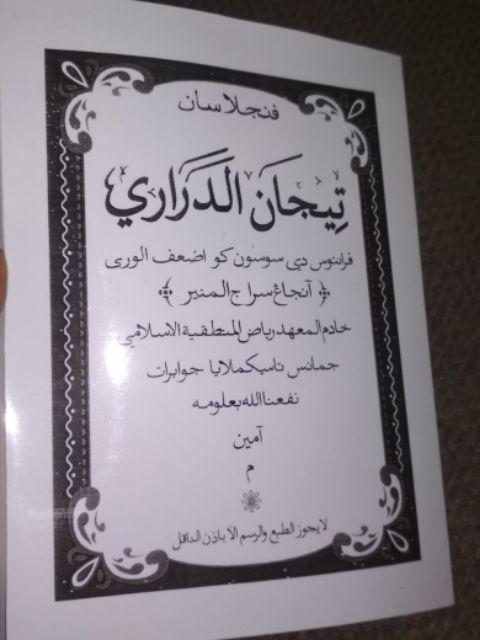 فنجلاسان
تِيجَانَ الدَرَارِي
فرانتوس دي سوسون كو اضعف الورى
﴿ آنجاڠ سراج المنير ﴾
خادم المعهد رياض المنطقية الاسلامي
جمانس تاسيكملايا جوابرات
نفعنا الله بعلومه
آمين
م
لا يجوز الطبع والرسم الا باذن الناقل